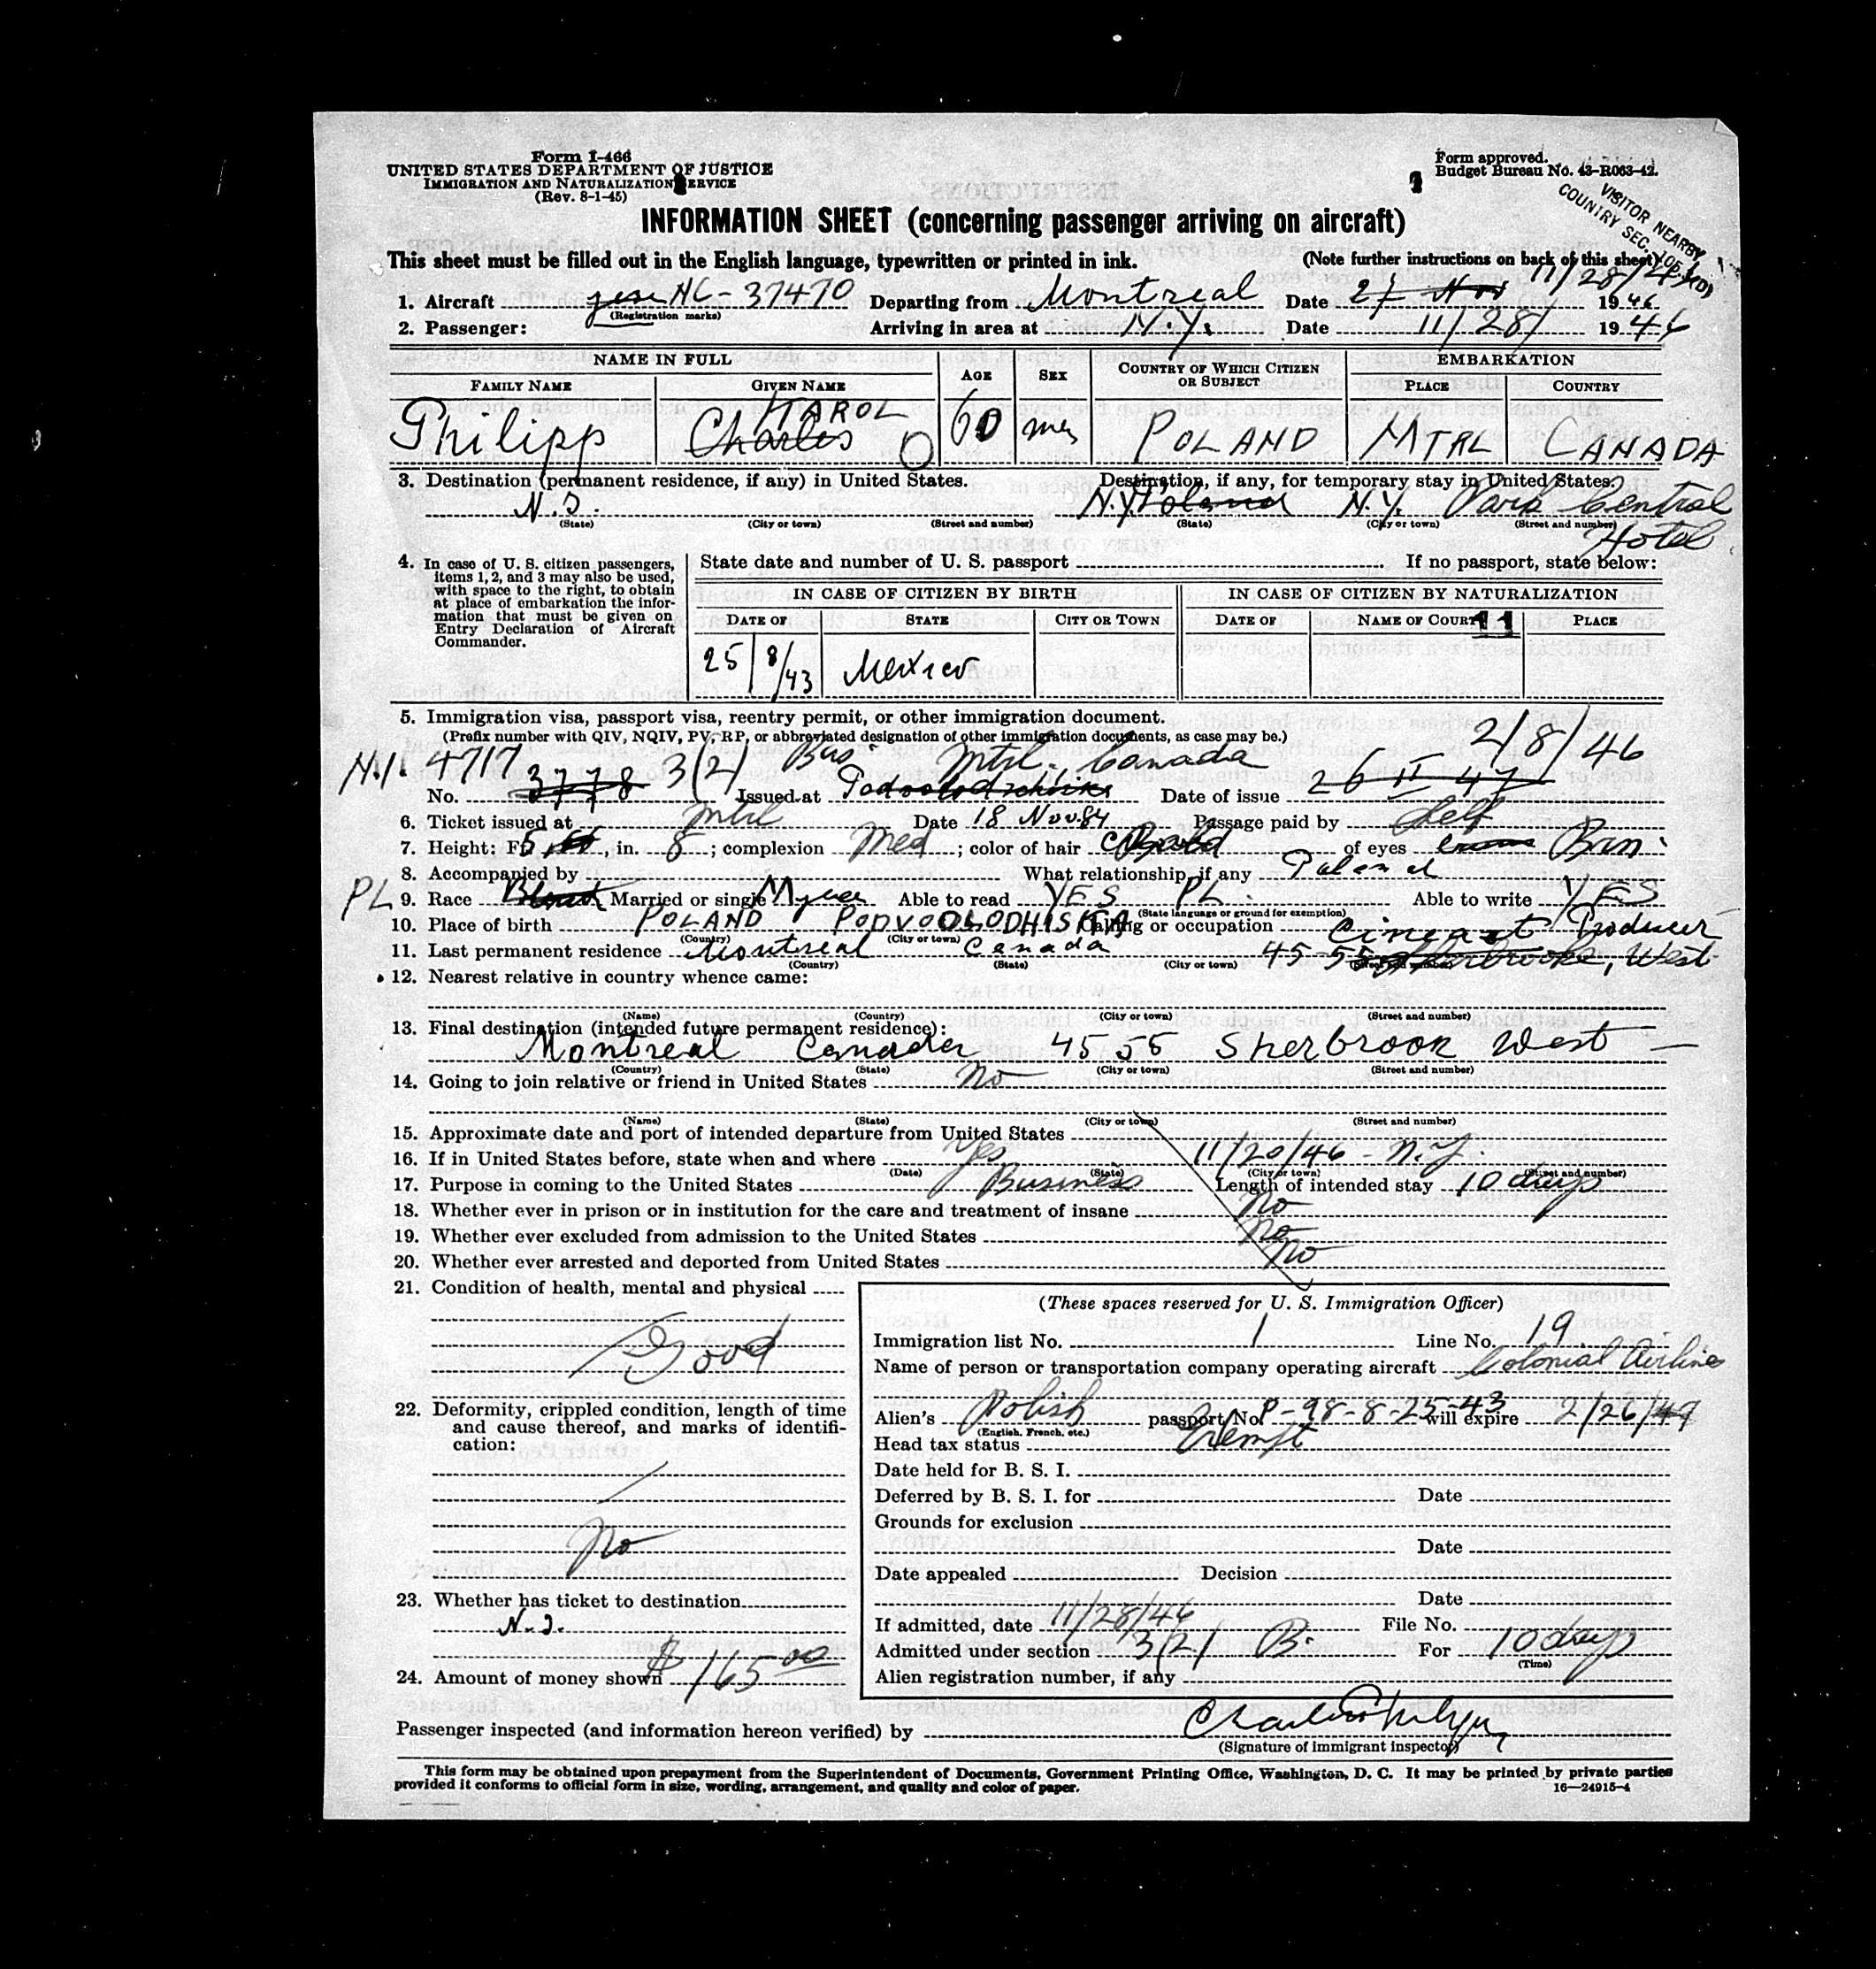 Form I-466
UNITED STATES DEPARTMENT OF JUSTICE
IMMIGRATION AND NATURALIZATION SERVICE
(Rev. 8-1-45)
Form approved.
Budget Bureau No. 43-R063-42.
VISITOR NEARBY
COUNTRY SEC.
INFORMATION SHEET (concerning passenger arriving on aircraft)
This sheet must be filled out in the English language, typewritten or printed in ink. (Note further instructions on back of this sheet)
1. Aircraft NC-37470 Departing from Montreal Date 27 Nov 11/28/ 1946
(Registration marks)
2. Passenger: Arriving in area at N.Y. Date 11/28/ 1946
NAME IN FULL AGE SEX COUNTRY OF WHICH CITIZEN OR SUBJECT EMBARKATION
FAMILY NAME GIVEN NAME PLACE COUNTRY
KAROL
Philipp Charles 60 POLAND MTRL CANADA
3. Destination (permanent residence, if any) in United States. Destination, if any, for temporary stay in United States.
N.Y. Poland N.Y. Park Central
(State) (City or town) (Street and number) (State) (City or town) (Street and number)
Hotel
4. In case of U. S. citizen passengers, items 1, 2, and 3 may also be used, with space to the right, to obtain at place of embarkation the information that must be given on Entry Declaration of Aircraft Commander.
State date and number of U. S. passport If no passport, state below:
IN CASE OF CITIZEN BY BIRTH IN CASE OF CITIZEN BY NATURALIZATION
DATE OF STATE CITY OR TOWN DATE OF NAME OF COURT 11 PLACE
25/8/43 Mexico
5. Immigration visa, passport visa, reentry permit, or other immigration document.
(Prefix number with QIV, NQIV, PV, RP, or abbreviated designation of other immigration documents, as case may be.)
4717 3(2) Bus. Mtrl. Canada 2/8/46
No. 3778 Issued at Date of issue 26 II 47
6. Ticket issued at Mtrl Date 18 Nov. 84 Passage paid by Self
7. Height: Ft. 5, in. 8; complexion Med; color of hair Bald of eyes Brn.
8. Accompanied by What relationship, if any Poland
PL 9. Race Married or single Able to read YES PL. Able to write YES
(State language or ground for exemption)
10. Place of birth POLAND PODVOOLODHISKA Calling or occupation Cineast Producer
(Country) (City or town)
11. Last permanent residence Montreal Canada 45-55 Sherbrooke, West
(Country) (State) (City or town) (Street and number)
12. Nearest relative in country whence came:
(Name) (Country) (City or town) (Street and number)
13. Final destination (intended future permanent residence):
Montreal Canada 4555 Sherbrook West
(Country) (State) (City or town) (Street and number)
14. Going to join relative or friend in United States No
(Name) (State) (City or town) (Street and number)
15. Approximate date and port of intended departure from United States
16. If in United States before, state when and where Yes 11/20/46 - N.Y.
(Date) (State) (City or town) (Street and number)
17. Purpose in coming to the United States Business Length of intended stay 10 days
18. Whether ever in prison or in institution for the care and treatment of insane No
19. Whether ever excluded from admission to the United States No
20. Whether ever arrested and deported from United States No
21. Condition of health, mental and physical
Good
22. Deformity, crippled condition, length of time and cause thereof, and marks of identification:
No
23. Whether has ticket to destination
24. Amount of money shown $165.00
(These spaces reserved for U. S. Immigration Officer)
Immigration list No. 1 Line No. 19
Name of person or transportation company operating aircraft Colonial Airlines
Alien's Polish passport No. P-98-8-25-43 will expire 2/26/47
(English, French, etc.)
Head tax status Exempt
Date held for B. S. I.
Deferred by B. S. I. for Date
Grounds for exclusion
Date
Date appealed Decision
Date
If admitted, date 11/28/46 File No.
Admitted under section 3(2) B. For 10 days
(Time)
Alien registration number, if any
Passenger inspected (and information hereon verified) by
(Signature of immigrant inspector)
This form may be obtained upon prepayment from the Superintendent of Documents, Government Printing Office, Washington, D. C. It may be printed by private parties
provided it conforms to official form in size, wording, arrangement, and quality and color of paper. 16—24915-4